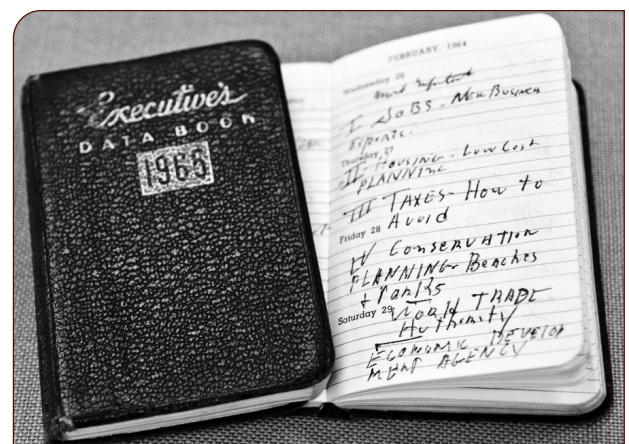 Executive's
DATA BOOK
1965
FEBRUARY, 1964
Wednesday 26
I JOBS - New Business
Exports.
Thursday 27
II Housing - Low Cost
PLANNING
III TAXES - How to
Avoid
Friday 28
IV Conservation
PLANNING - Beaches
+ Parks
Saturday 29
World TRADE
Authority
ECONOMIC DEVELOP
MENT AGENCY